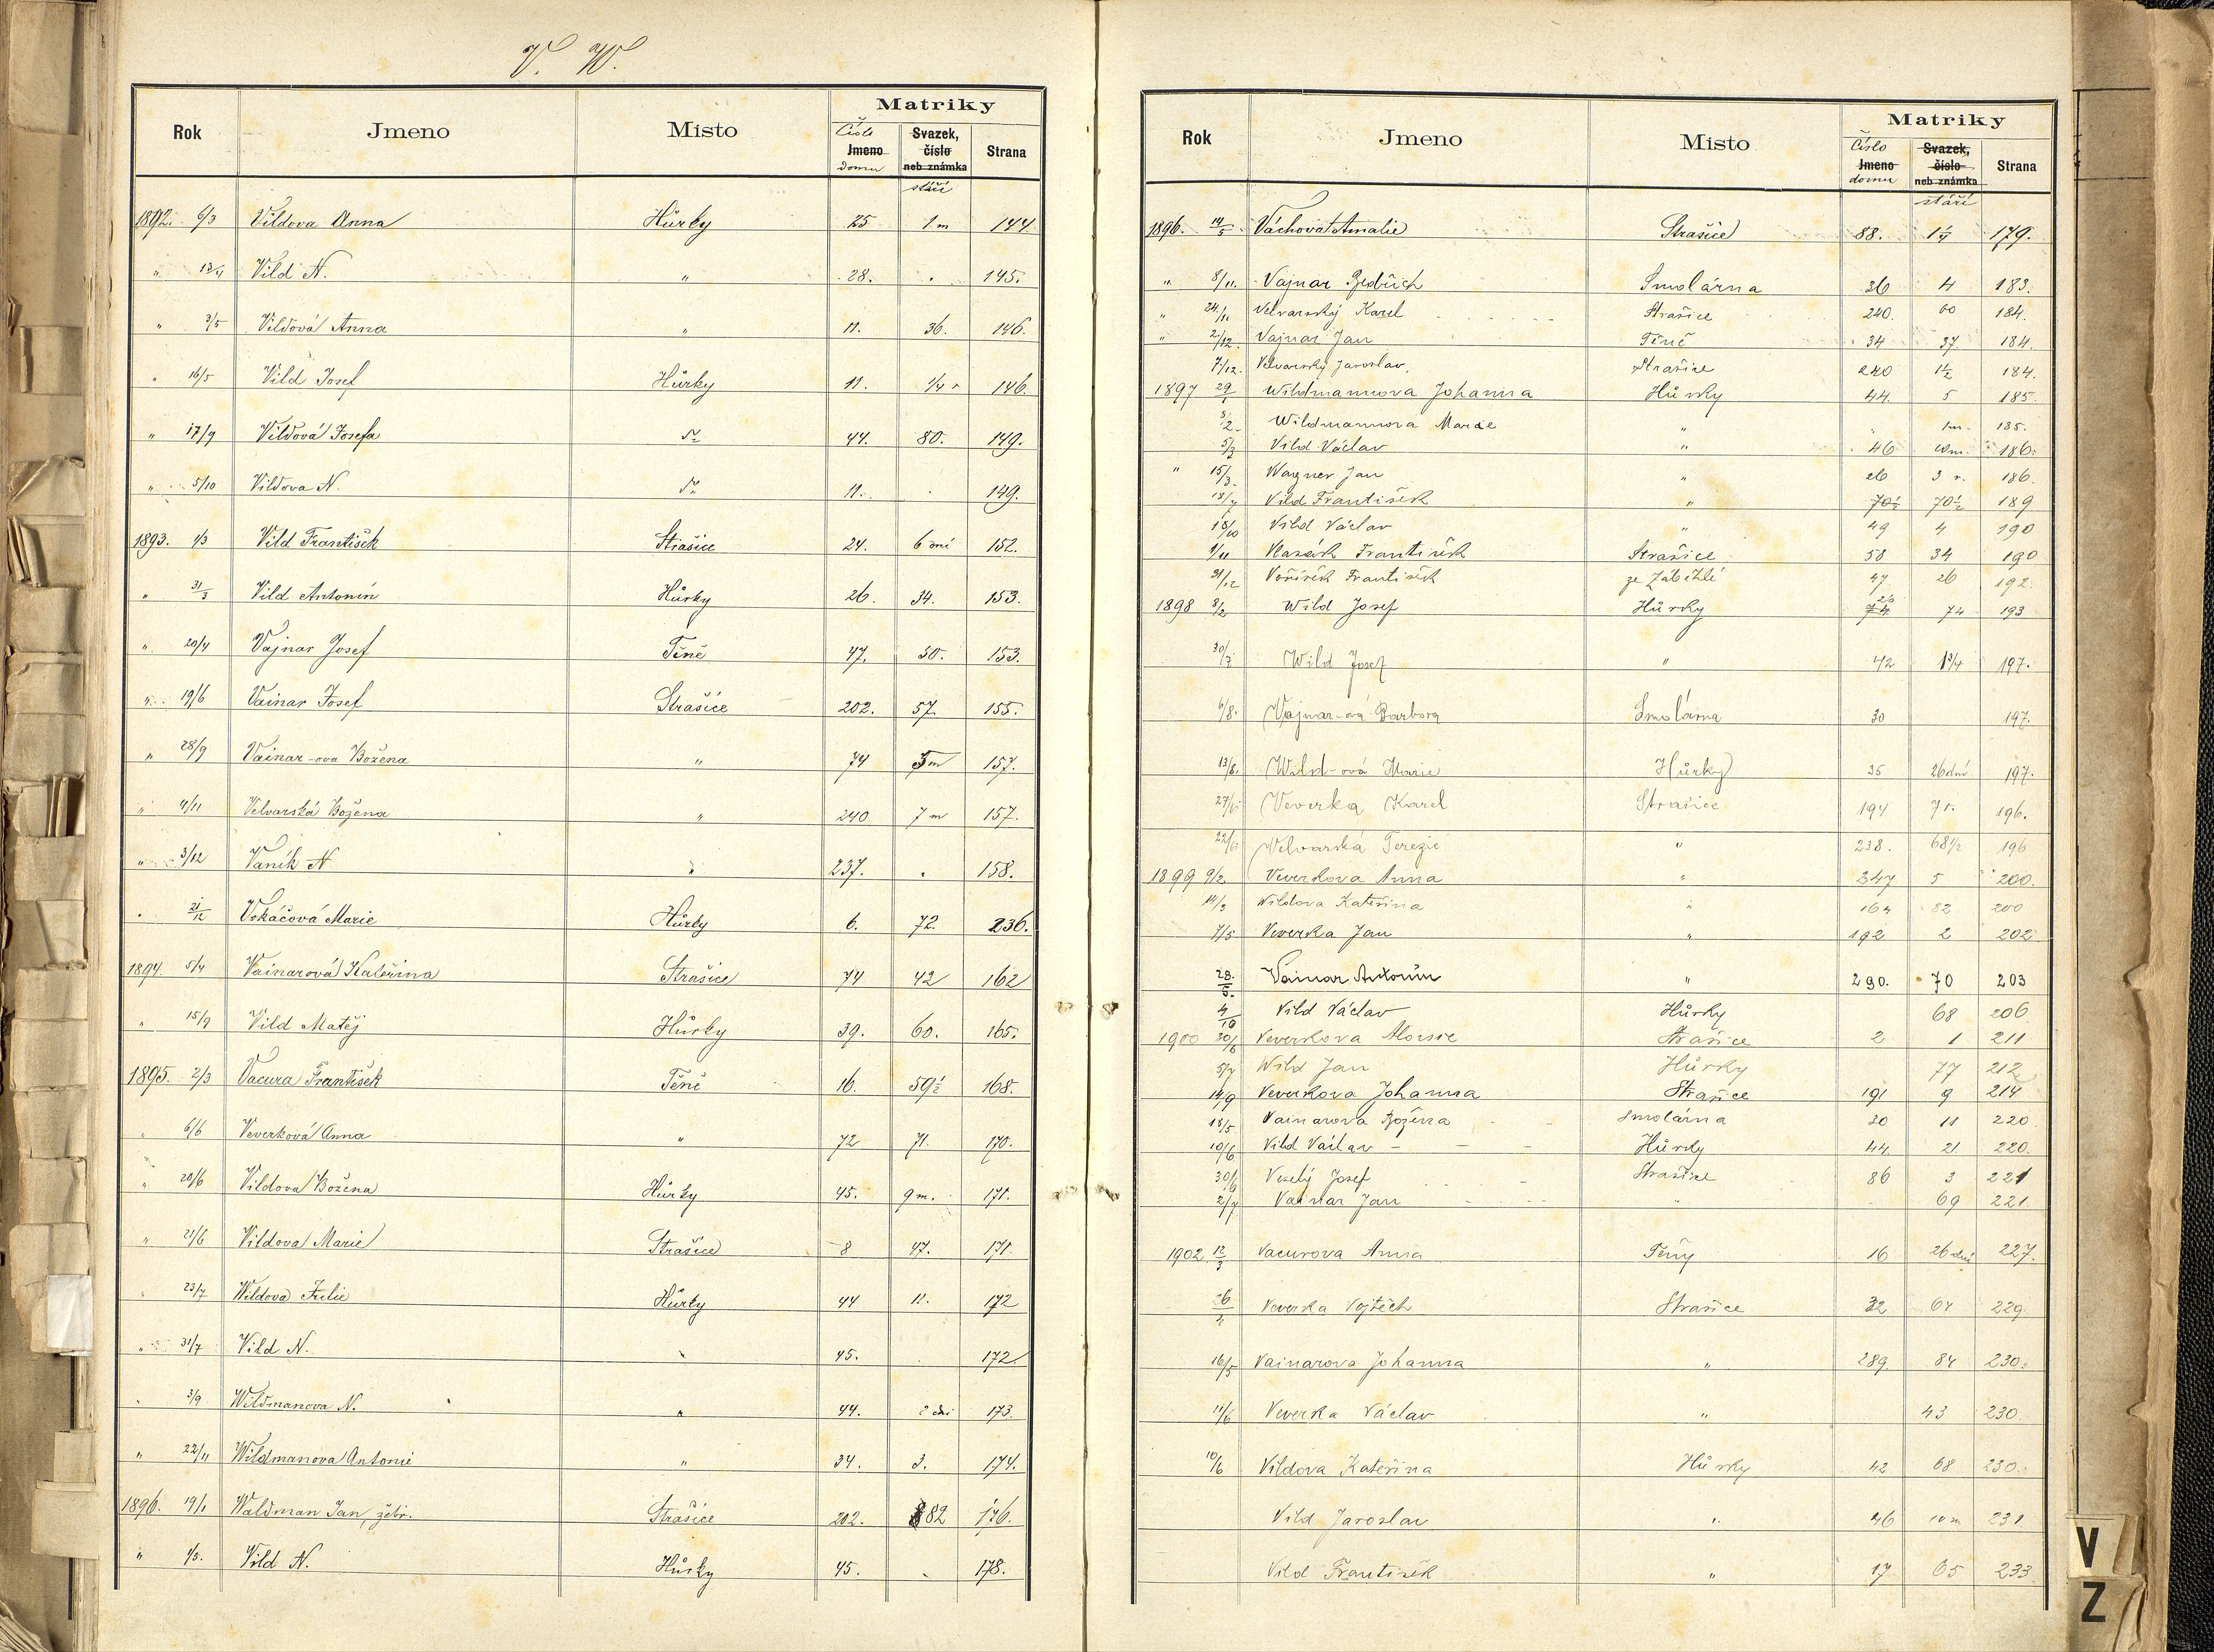 V. W.
Rok Jmeno Místo Matriky
Číslo Jmeno domu Svazek, číslo neb známka stáří Strana
1892. 6/3 Vildova Anna Hůrky 25 1 m 144
" 13/4 Vild N. " 28. . 145.
" 3/5 Vildová Anna " 11. 36. 146.
" 16/5 Vild Josef Hůrky 11. 1/4 r 146.
" 17/9 Vildová Josefa 44. 80. 149.
" 5/10 Vildova N. 11. . 149.
1893. 1/3 Vild František Strašice 24. 6 dní 152.
" 31/3 Vild Antonín Hůrky 26. 34. 153.
" 20/4 Vajnar Josef Těně 47. 50. 153.
" 19/6 Vainar Josef Strašice 202. 57. 155.
" 28/9 Vainar-ova Božena " 74 5 m 157.
" 4/11 Velvarská Božena " 240 7 m 157.
" 3/12 Vaník N " 237. . 158.
" 21/12 Vokáčová Marie Hůrky 6. 72. 236.
1894. 5/4 Vainarová Kateřina Strašice 74 42 162
" 15/9 Vild Matěj Hůrky 39. 60. 165.
1895. 2/3 Vacura František Těně 16. 59 1/2 168.
" 6/6 Veverková Anna " 72 71. 170.
" 20/6 Vildova Božena Hůrky 45. 9 m. 171.
" 21/6 Vildova Marie Strašice 8 47. 171.
" 23/7 Wildova Julie Hůrky 44 11. 172
" 31/7 Vild N. " 45. . 172.
" 3/9 Wildmanova N. " 44. 2 dni 173.
" 22/11 Wildmanova Antonie " 34. 3. 174.
1896. 19/1 Waldman Jan, žebr. Strašice 202. 82 176.
" 1/5. Vild N. Hůrky 45. . 178.
Rok Jmeno Místo Matriky
Číslo Jmeno domu Svazek, číslo neb známka stáří Strana
1896. 14/5 Váchová Amalie Strašice 88. 1 1/4 179.
" 8/11. Vajnar Bedřich Smolárna 36 4 183.
" 24/11. Velvarský Karel Strašice 240. 60 184.
" 2/12. Vajnar Jan Těně 34 37 184.
7/12. Velvarský Jaroslav. Strašice 240 1 1/2 184.
1897 29/1 Wildmannova Johanna Hůrky 44. 5 185.
3/2. Wildmannova Marie " " 1 m. 185.
5/3 Vild Václav " 46 186.
" 15/3. Wagner Jan " 26 3 r. 186.
18/7 Vild František " 70 1/2 70 1/2 189
18/10 Vild Václav " 49 4 190
1/11 Vlasák František Strašice 58 34 190
31/12 Voříšek František ze Záběhlé 47 26 192.
1898 8/2 Wild Josef Hůrky 26 74 193
30/7 Wild Josef " 42 1 3/4 197.
6/8. Vajnar-ová Barbora Smolárna 30 197.
13/8. Wild-ová Marie Hůrky 35 26 dní 197.
27/6 Veverka Karel Strašice 194 7 r. 196.
22/6 Velvarská Terezie " 238. 68 1/2 196
1899 9/2 Veverkova Anna " 247 5 200.
14/3 Wildova Kateřina " 164 82 200
7/5 Veverka Jan " 192 2 202
28./5. Vainar Antonín " 290. 70 203
4/10 Vild Václav Hůrky 68 206
1900 30/6 Veverkova Aloisie Strašice 2 1 211
5/7 Wild Jan Hůrky 77 212
14/9 Veverkova Johanna Strašice 191 9 214
18/5 Vainarova Božena Smolárna 20 11 220
10/6 Vild Václav - - - Hůrky 44. 21. 220.
30/6 Veselý Josef Strašice 86 3 221
2/7 Vainar Jan " 69 221.
1902. 12/3 Vacurova Anna Těny 16 26 dní 227.
26/2 Veverka Vojtěch Strašice 32 64 229.
16/5 Vainarova Johanna " 289. 84 230.
11/6 Veverka Václav " 43 230.
10/6 Vildova Kateřina Hůrky 42 68 230.
Vild Jaroslav " 46 10 m 231.
Vild František " 17 65 233
V
Z